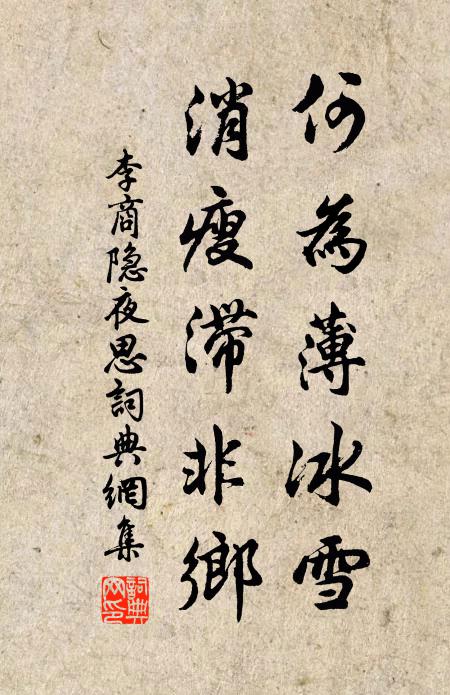 何為薄冰雪
消瘦滞非鄉
李商隐夜思詞典網集
詞典
网印